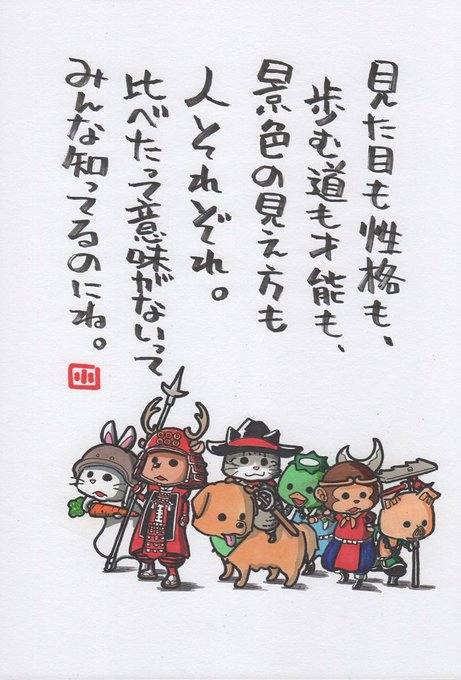 見た目も性格も、
歩む道も才能も、
景色の見え方も
人それぞれ。
比べたって意味がないって
みんな知ってるのにね。